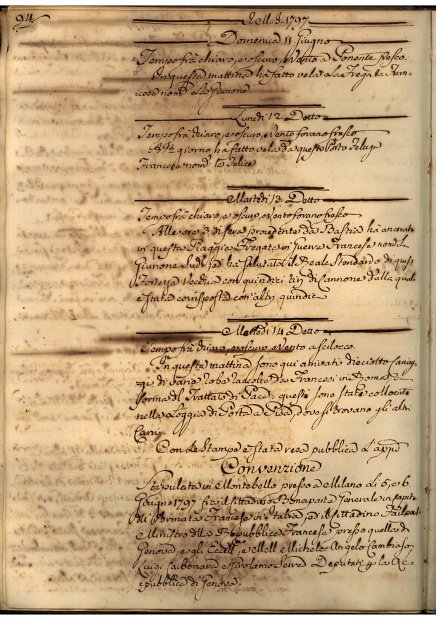 94
A dì d.º 1797
Domenica 11 Giugno
Tempo frà chiaro, e oscuro, Vento a Ponente fresco.
In questa mattina hà fatto vela La Fregata Fran-
cese nom.ª Giunone
Lunedì 12 Detto
Tempo frà chiaro, e oscuro, e Vento forano fresco
A giorno hà fatto vela da questo Porto Feluga
Francese nom.ª La Felice
Martedì 13 Detto
Tempo frà chiaro, e oscuro, e Vento forano fresco
Alle ore 3 di sera procedente da Bastia hà ancorato
in questa Piaggia Fregata in Guerra Francese nom.ª
Giunone Sud.ª ed hà Salutato il Reale Stendardo di questa
Fortezza Vecchia con quindici tiri di Cannone dalla quale
è Stato corrisposto con altri quindici
Mercoledì 14 Detto
Tempo frà chiaro, e oscuro, e Vento a scilocco.
In questa mattina sono qui arrivati dieciotto Carriag-
gi di varie robe da Francesi in Roma a
forma del Trattato di Pace; queste sono state collocate
nella Loggia di Porta a Pisa, dove si trovano gli altri
Carri.
Con le Stampe è Stata resa pubblica L'app.ª
Convenzione
Stipulata in Montebello presso a Milano li 5, e 6
Giugno 1797 frà il Cittadino Bonaparte Generale in capite
dell'Armata Francese in Italia, ed il Cittadino Faitpoult
Ministro della Repubblica Francese presso quella di
Genova, e gli Eccell.i e Michel Angelo Cambiaso,
Luigi Carbonara, e Girolamo Serra Deputati la Re-
pubblica di Genova.